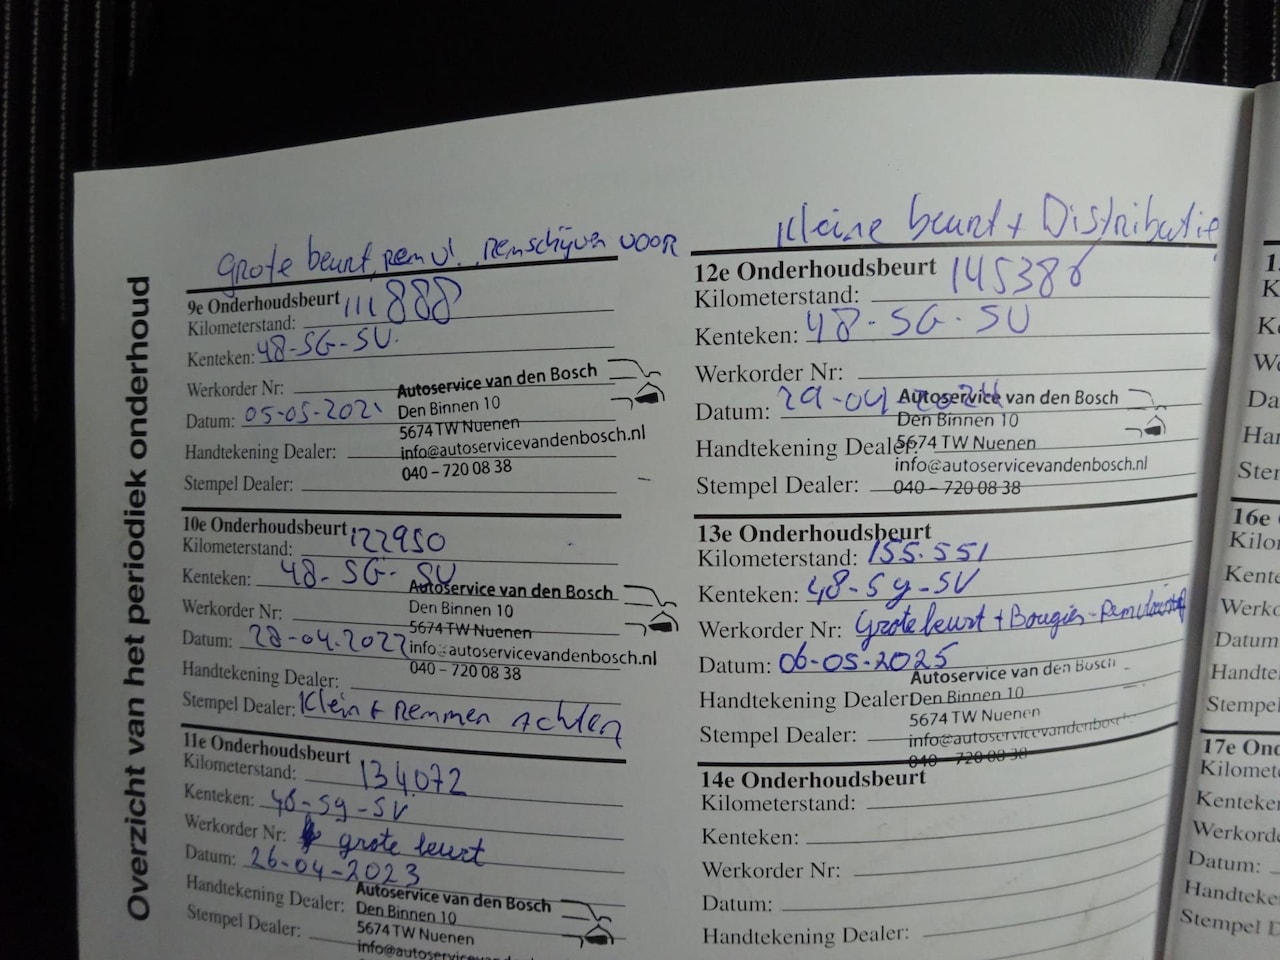 Overzicht van het periodiek onderhoud
Grote beurt, remvl. remschijven voor
9e Onderhoudsbeurt
Kilometerstand: 111888
Kenteken: 48-SG-SU
Werkorder Nr:
Datum: 05-05-2021
Handtekening Dealer:
Stempel Dealer:
Autoservice van den Bosch
Den Binnen 10
5674 TW Nuenen
info@autoservicevandenbosch.nl
040 – 720 08 38
10e Onderhoudsbeurt
Kilometerstand: 122950
Kenteken: 48-SG-SU
Werkorder Nr:
Datum: 28-04-2022
Handtekening Dealer:
Stempel Dealer: Klein + remmen achter
Autoservice van den Bosch
Den Binnen 10
5674 TW Nuenen
info@autoservicevandenbosch.nl
040 – 720 08 38
11e Onderhoudsbeurt
Kilometerstand: 134.072
Kenteken: 48-Sg-SV
Werkorder Nr: grote beurt
Datum: 26-04-2023
Handtekening Dealer:
Stempel Dealer:
Autoservice van den Bosch
Den Binnen 10
5674 TW Nuenen
info@autoservicevandenbosch
Kleine beurt + Distributie
12e Onderhoudsbeurt
Kilometerstand: 145386
Kenteken: 48-SG-SU
Werkorder Nr:
Datum: 29-04-2024
Handtekening Dealer:
Stempel Dealer:
Autoservice van den Bosch
Den Binnen 10
5674 TW Nuenen
info@autoservicevandenbosch.nl
040 – 720 08 38
13e Onderhoudsbeurt
Kilometerstand: 155.551
Kenteken: 48-Sg-SV
Werkorder Nr: Grote beurt + Bougies - Remvloeistof
Datum: 06-05-2025
Handtekening Dealer
Stempel Dealer:
Autoservice van den Bosch
Den Binnen 10
5674 TW Nuenen
info@autoservicevandenbosch
040 – 720 08 38
14e Onderhoudsbeurt
Kilometerstand:
Kenteken:
Werkorder Nr:
Datum:
Handtekening Dealer:
16e
Kilo
Kente
Werko
Datum
Handte
Stempel
17e Ond
Kilomet
Kenteke
Werkord
Datum:
Handteke
Stempel D